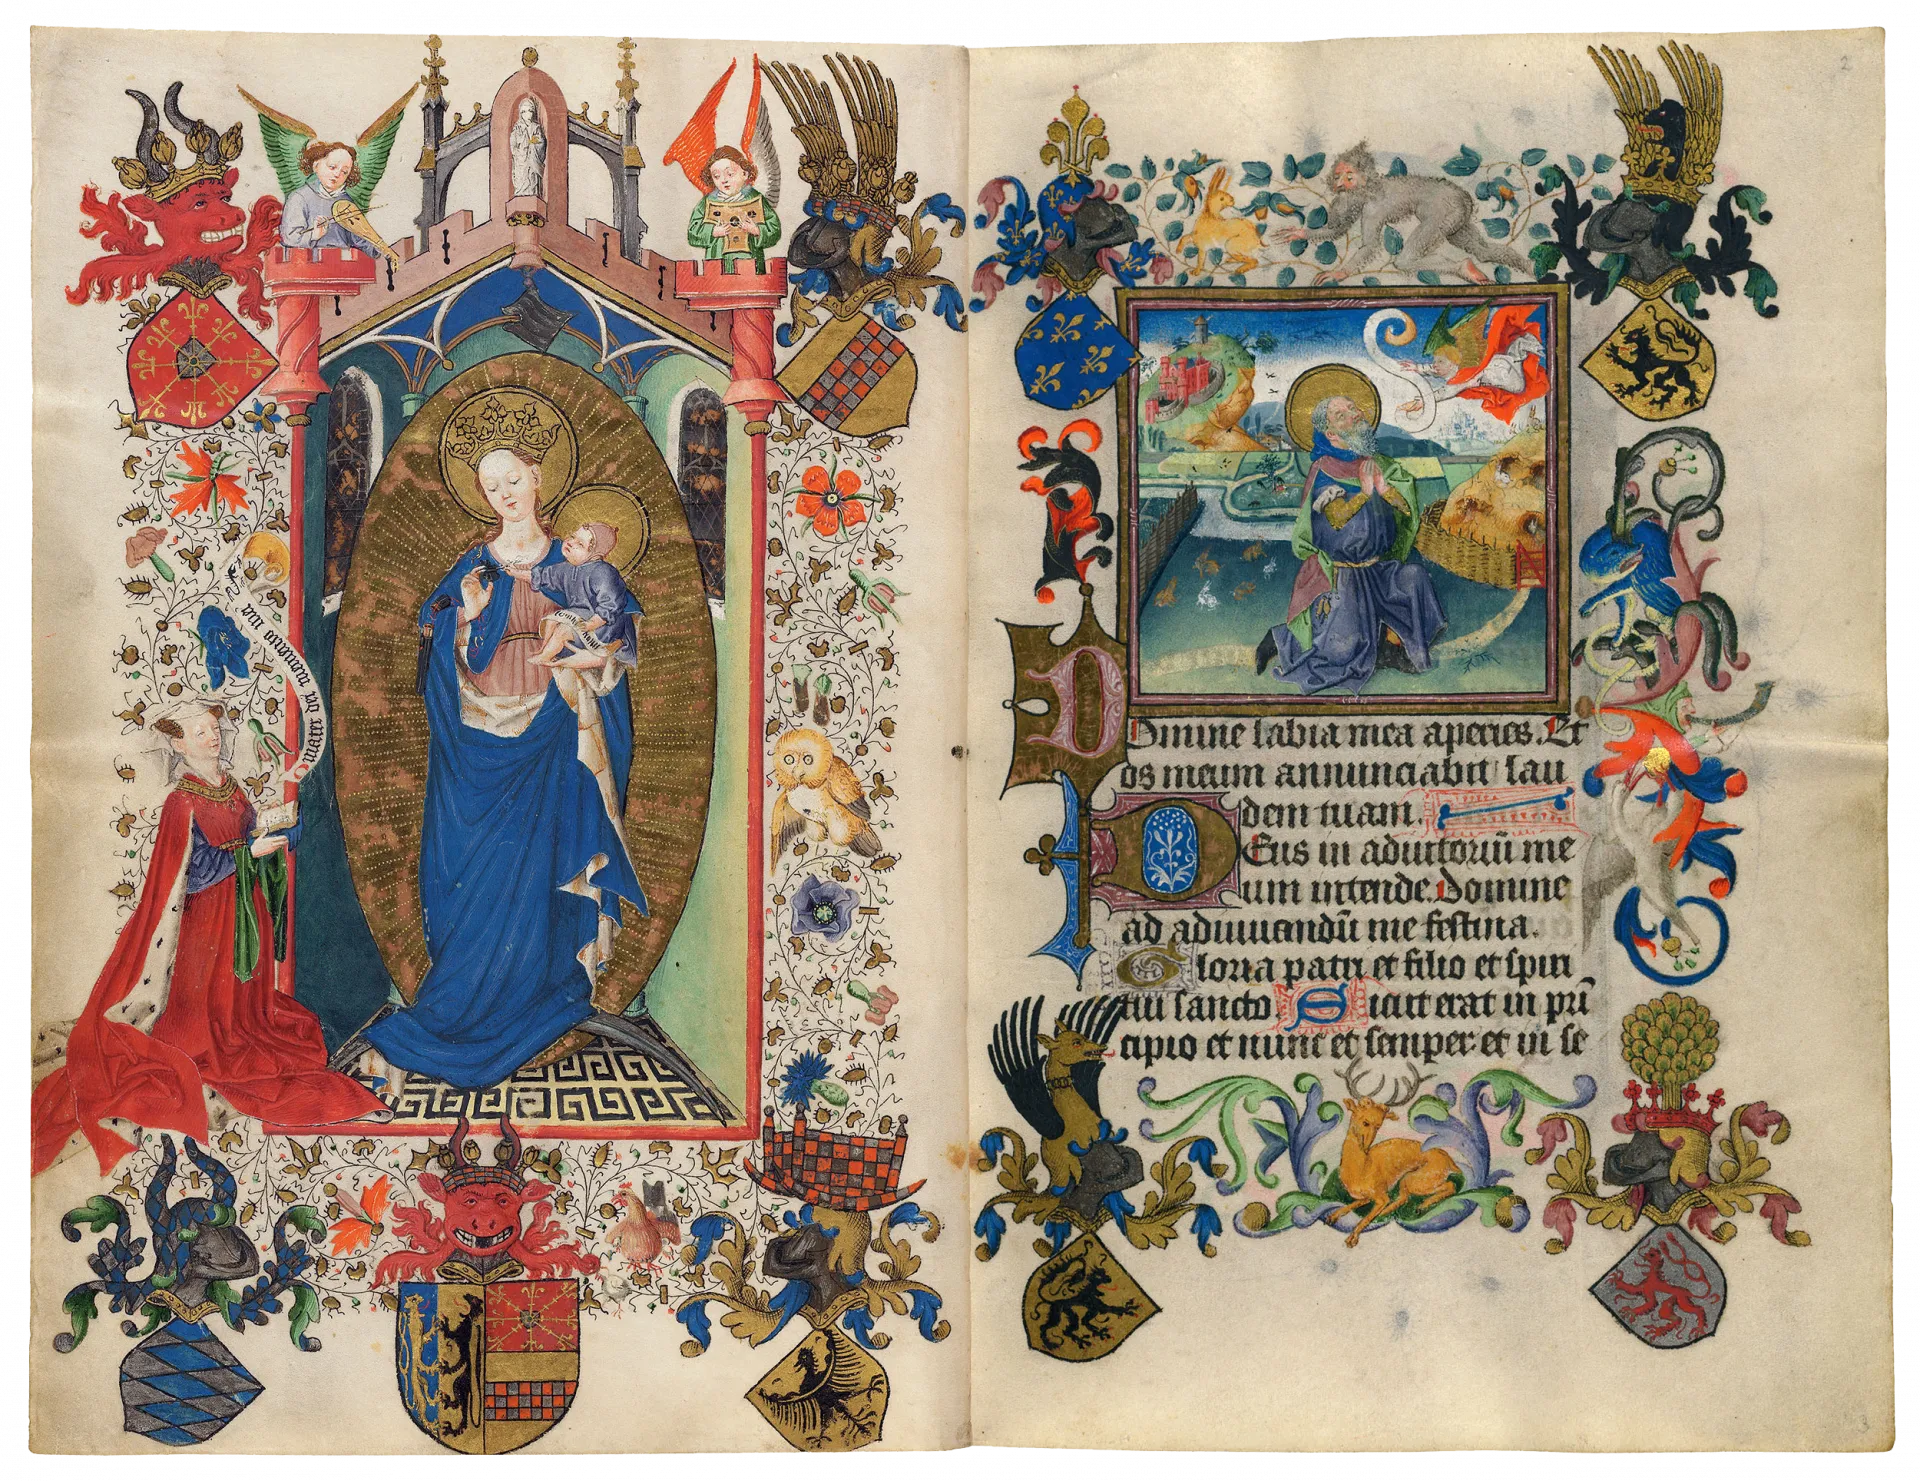 O mater dei memento mei
2
Domine labia mea aperies. Et
os meum annunciabit lau
dem tuam.
Deus in adiutoriū me
um intende. Domine
ad adiuuandū me festina.
Gloria patri et filio et spiri
tui sancto Sicut erat in prī
cipio et nunc et semper et in se
3